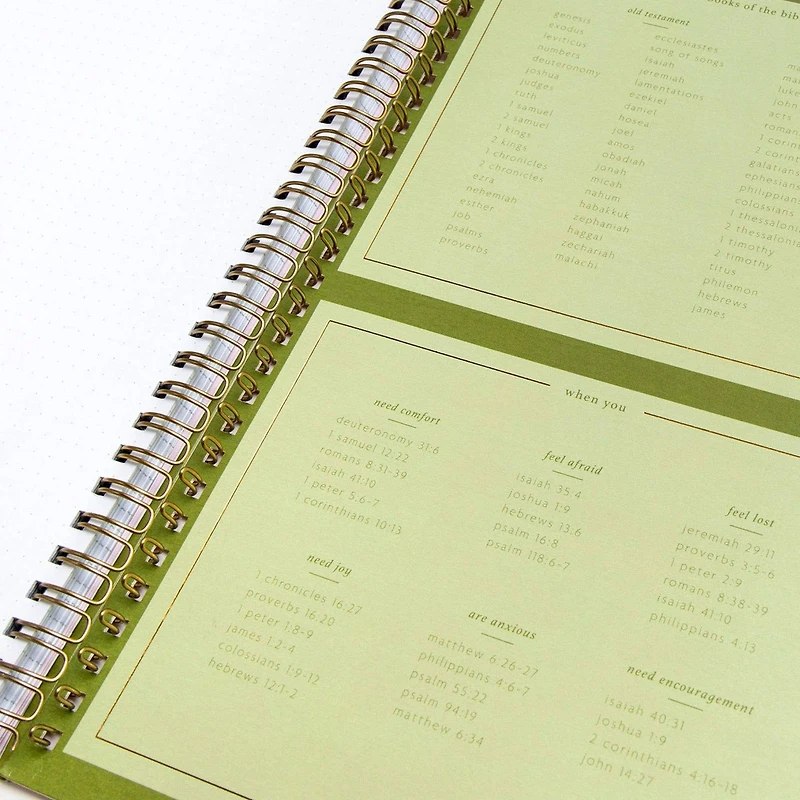 books of the bib
old testament
genesis
exodus
leviticus
numbers
deuteronomy
joshua
judges
ruth
1 samuel
2 samuel
1 kings
2 kings
1 chronicles
2 chronicles
ezra
nehemiah
esther
job
psalms
proverbs
ecclesiastes
song of songs
isaiah
jeremiah
lamentations
ezekiel
daniel
hosea
joel
amos
obadiah
jonah
micah
nahum
habakkuk
zephaniah
haggai
zechariah
malachi
luke
john
acts
roman
1 corin
2 corint
galatians
ephesians
philippians
colossians
1 thessalonia
2 thessalonia
1 timothy
2 timothy
titus
philemon
hebrews
james
when you
need comfort
deuteronomy 31:6
1 samuel 12:22
romans 8:31-39
isaiah 41:10
1 peter 5:6-7
1 corinthians 10:13
feel afraid
isaiah 35:4
joshua 1:9
hebrews 13:6
psalm 16:8
psalm 118:6-7
feel lost
jeremiah 29:11
proverbs 3:5-6
1 peter 2:9
romans 8:38-39
isaiah 41:10
philippians 4:13
need joy
1 chronicles 16:27
proverbs 16:20
1 peter 1:8-9
james 1:2-4
colossians 1:9-12
hebrews 12:1-2
are anxious
matthew 6:26-27
philippians 4:6-7
psalm 55:22
psalm 94:19
matthew 6:34
need encouragement
isaiah 40:31
joshua 1:9
2 corinthians 4:16-18
john 14:27